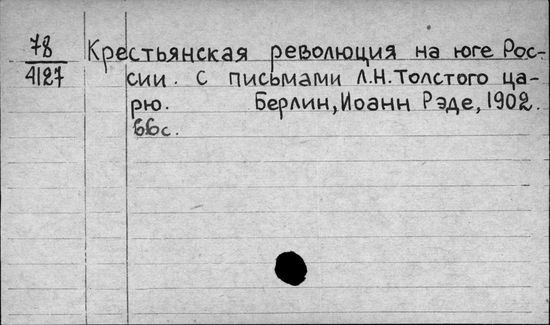 78 Крестьянская революция на юге Рос-
4127 сии. С письмами Л.Н.Толстого ца-
рю. Берлин, Иоанн Рэде, 1902.
66с.